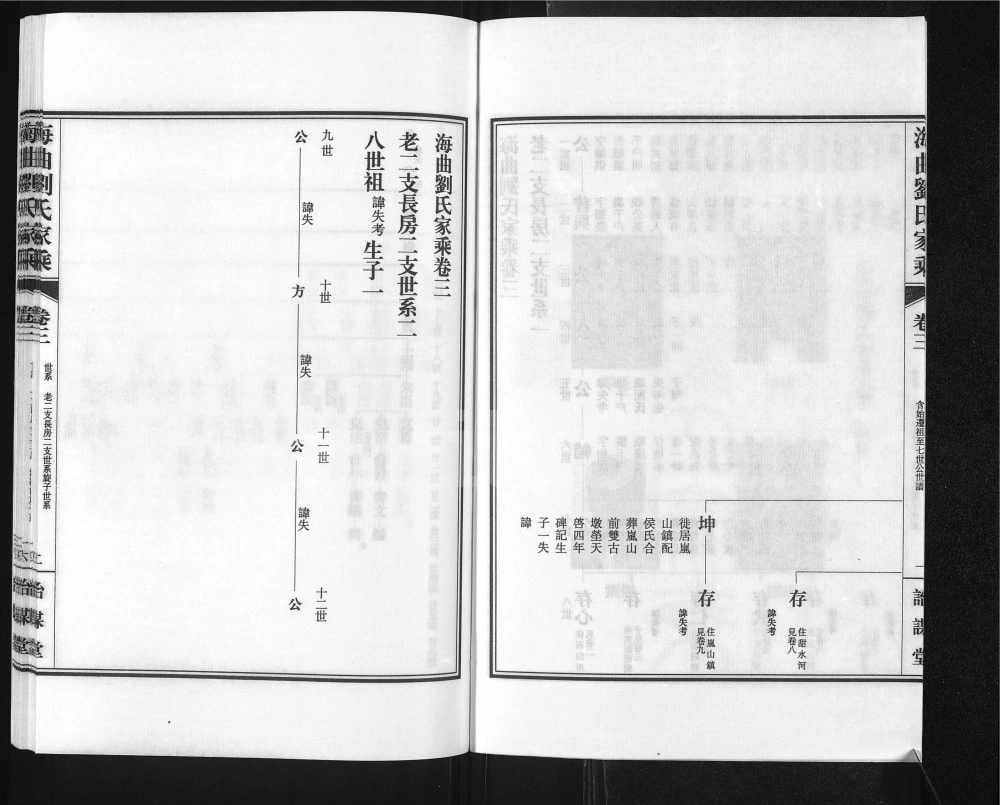 海曲劉氏家乘
卷三
含始遷祖至七世公世譜
詒謀堂
存
住甜水河
見卷八
諱失考
坤
徙居嵐
山鎮配
侯氏合
葬嵐山
前雙古
墩塋天
啓四年
碑記生
子一失
諱
存
住嵐山鎮
見卷九
諱失考
海曲劉氏家乘卷三
老二支長房二支世系二
八世祖 諱失考 生子一
九世
公
諱失
十世
方
諱失
十一世
公
諱失
十二世
公
海曲劉氏家乘
卷三
世系 老二支長房二支世系旋子世系
詒謀堂